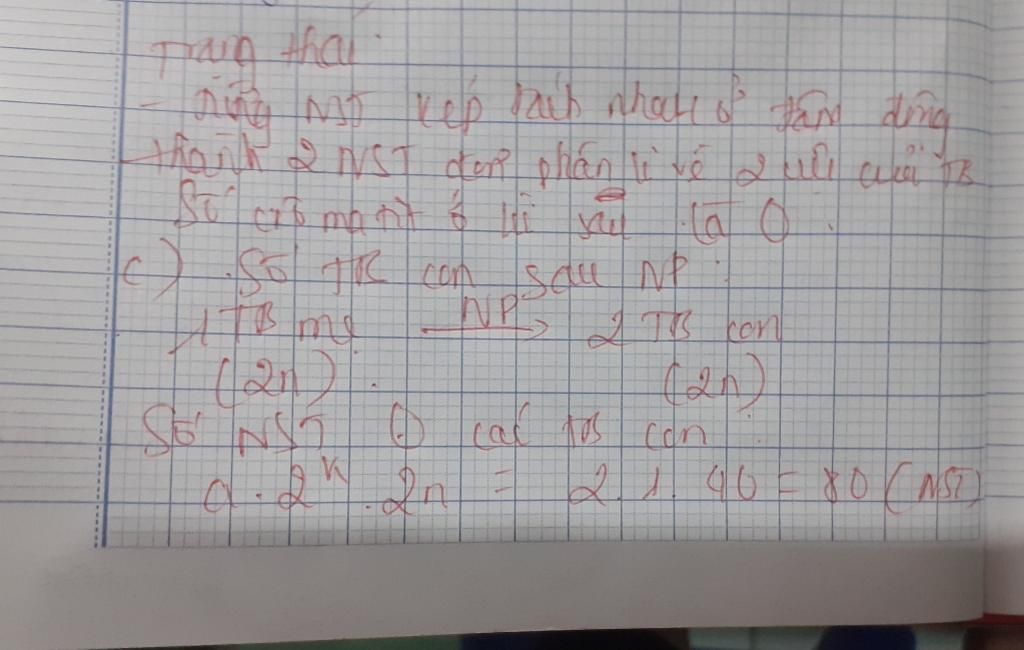 Trạng thái
- Từng NST kép tách nhau ở tâm động
thành 2 NST đơn phân li về 2 cực của TB
Số crômatit ở kì sau là 0.
c) . Số TB con sau NP:
1 TB mẹ NP→ 2 TB con
(2n) . (2n)
Số NST ⊙ các TB con:
a.2ᵏ.2n = 2.1.40 = 80 (NST)